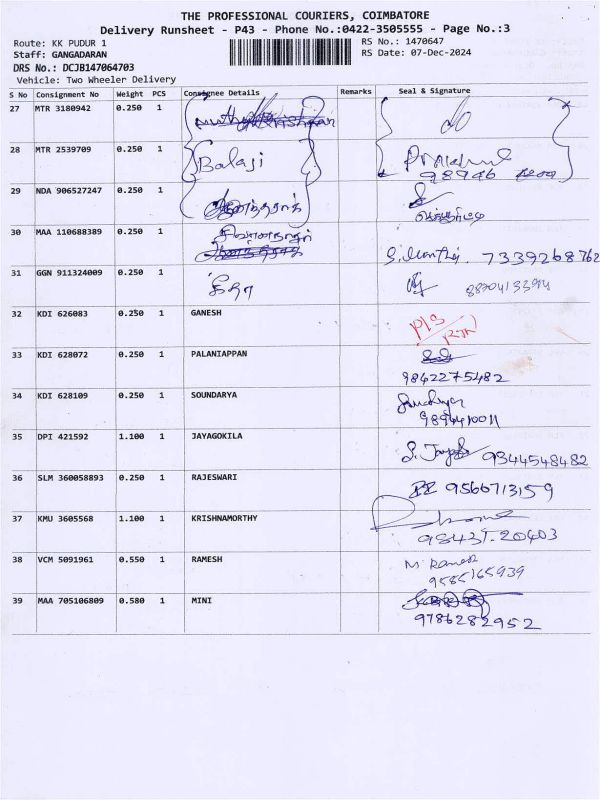 THE PROFESSIONAL COURIERS, COIMBATORE
Delivery Runsheet - P43 - Phone No.:0422-3505555 - Page No.:3
Route: KK PUDUR 1 RS No.: 1470647
Staff: GANGADARAN RS Date: 07-Dec-2024
DRS No.: DCJB147064703
Vehicle: Two Wheeler Delivery
S No Consignment No Weight PCS Consignee Details Remarks Seal & Signature
27 MTR 3180942 0.250 1
28 MTR 2539709 0.250 1 Balaji
29 NDA 906527247 0.250 1 ஆனந்தராஜ்
30 MAA 110688389 0.250 1
7339268762
31 GGN 911324009 0.250 1 கீதா
32 KDI 626083 0.250 1 GANESH
33 KDI 628072 0.250 1 PALANIAPPAN
9842275482
34 KDI 628109 0.250 1 SOUNDARYA
35 DPI 421592 1.100 1 JAYAGOKILA
9344548482
36 SLM 360058893 0.250 1 RAJESWARI
9566713159
37 KMU 3605568 1.100 1 KRISHNAMORTHY
38 VCM 5091961 0.550 1 RAMESH M. Ramesh
9585165939
39 MAA 705106809 0.580 1 MINI
9786282952